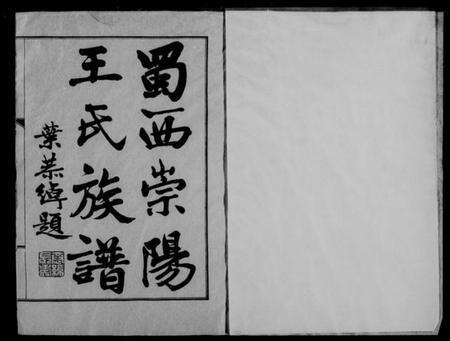 蜀西崇陽
王氏族譜
葉茶綽題